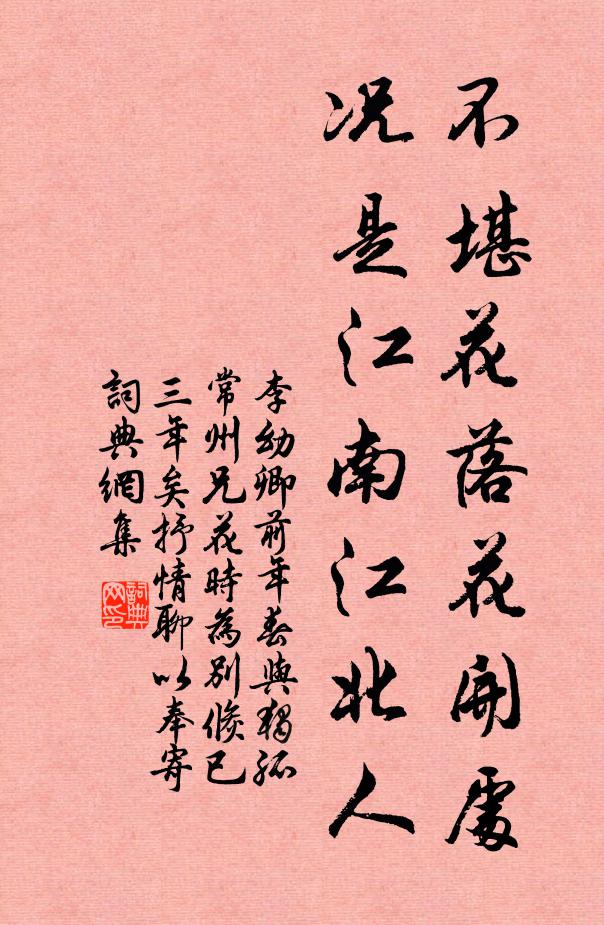 不堪花落花開處
况是江南江北人
李幼卿前年春與獨孤
常州兄花時為別倏已
三年矣抒情聊以奉寄
詞典網集
詞典网印